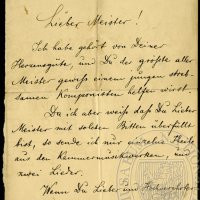 Lieber Meister!
Ich habe gehört von Deiner
Herzensgüte, und Du der größte aller
Meister gewiß einem jungen streb-
samen Komponisten helfen wirst.
Da ich aber weiß daß Du Lieber
Meister mit solchen Bitten überfüllt
bist, so sende ich nur einzelne Theile
aus den Kammermusikwerken, und
zwei Lieder.
Wenn Du Lieber und